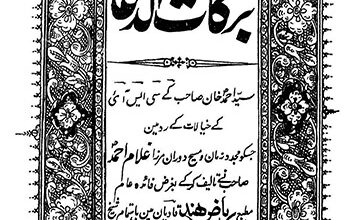 برکات الدعا
سید احمد خان صاحب کے سی ایس آئی
کے خیالات کے رد مین
جسکو مجدد زمان و مسیح دوران مرزا غلام احمد
صاحب نے تالیف کر کے بغرض فائدہ عالم
مطبع ریاض ہند قادیان مین باہتمام شیخ